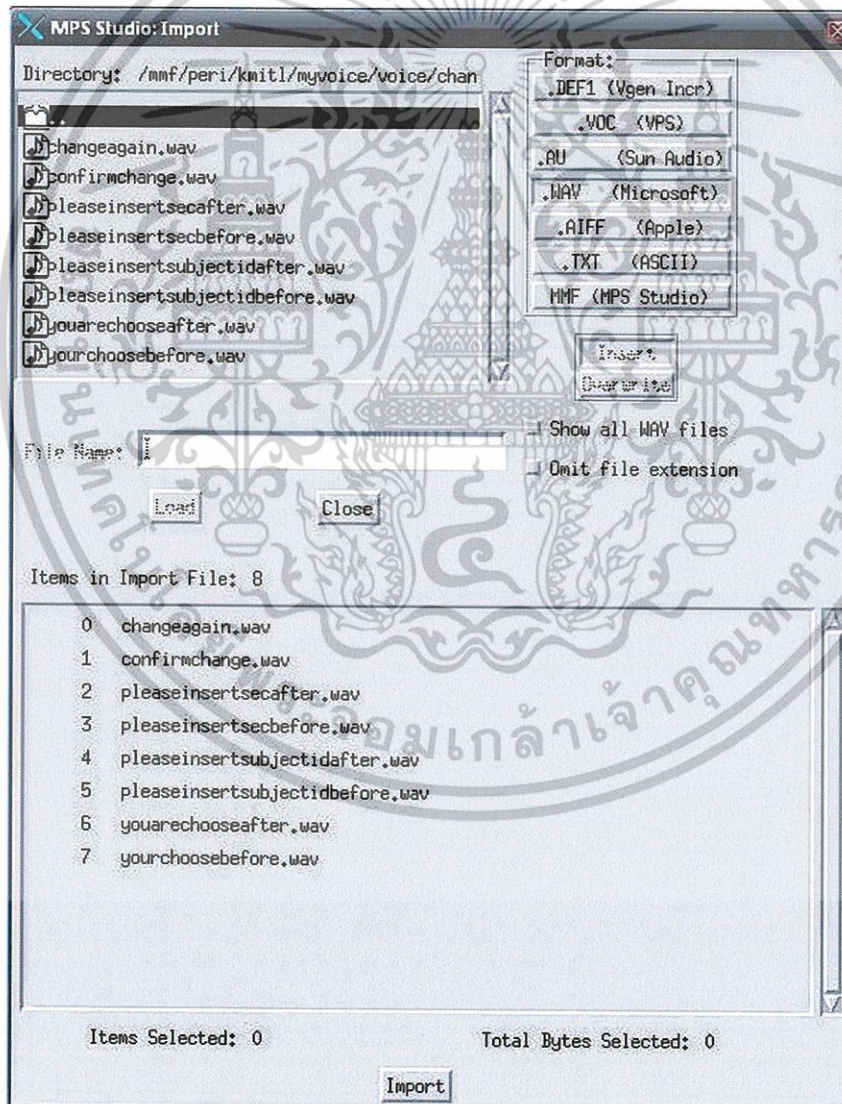 MPS Studio: Import
Directory: /mmf/peri/kmitl/myvoice/voice/chan
..
changeagain.wav
confirmchange.wav
pleaseinsertsecafter.wav
pleaseinsertsecbefore.wav
pleaseinsertsubjectidafter.wav
pleaseinsertsubjectidbefore.wav
youarechooseafter.wav
yourchoosebefore.wav
Format:
.DEF1 (Vgen Incr)
.VOC (VPS)
.AU (Sun Audio)
.WAV (Microsoft)
.AIFF (Apple)
.TXT (ASCII)
MMF (MPS Studio)
Insert
Overwrite
File Name:
Show all WAV files
Omit file extension
Load
Close
Items in Import File: 8
0 changeagain.wav
1 confirmchange.wav
2 pleaseinsertsecafter.wav
3 pleaseinsertsecbefore.wav
4 pleaseinsertsubjectidafter.wav
5 pleaseinsertsubjectidbefore.wav
6 youarechooseafter.wav
7 yourchoosebefore.wav
Items Selected: 0
Total Bytes Selected: 0
Import